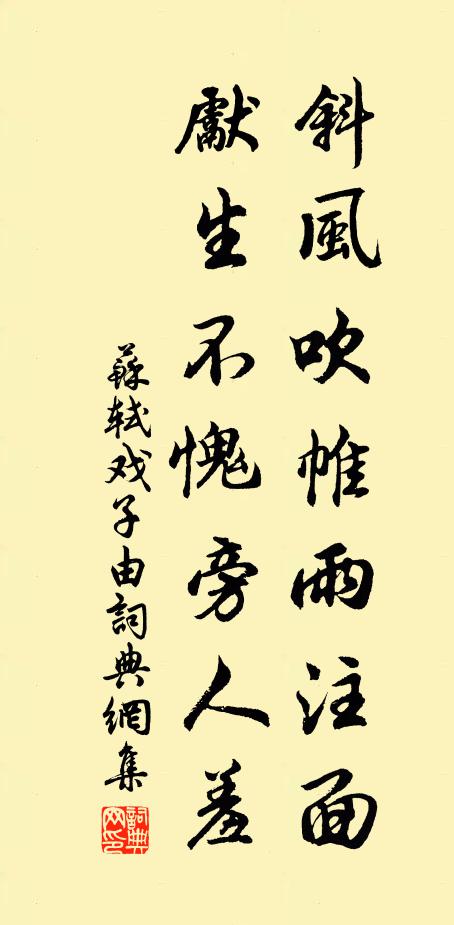 斜風吹帷雨注面
獻生不愧旁人羞
蘇軾戏子由詞典網集
詞典网印